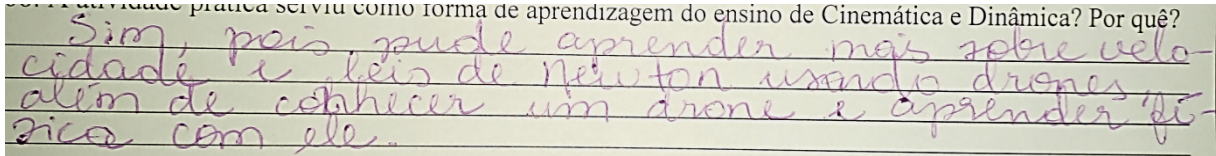 A atividade prática serviu como forma de aprendizagem do ensino de Cinemática e Dinâmica? Por quê?
Sim, pois pude aprender mais sobre velo-
cidade e leis de Newton usando drones,
além de conhecer um drone e aprender fí-
sica com ele.